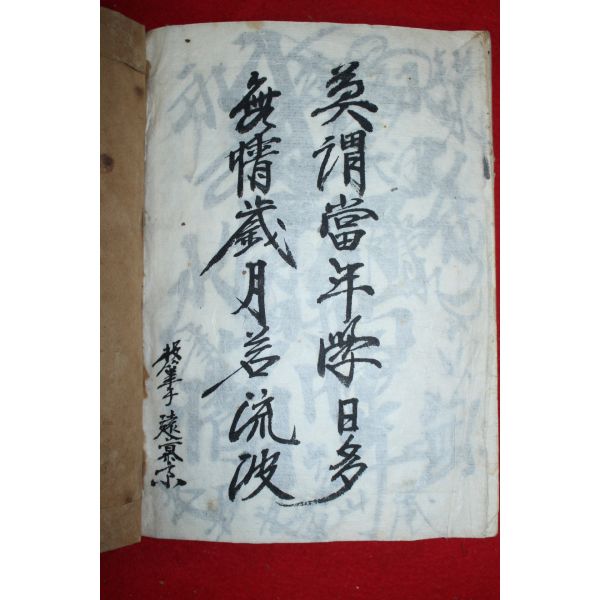 莫謂當年學日多
無情歲月若流波